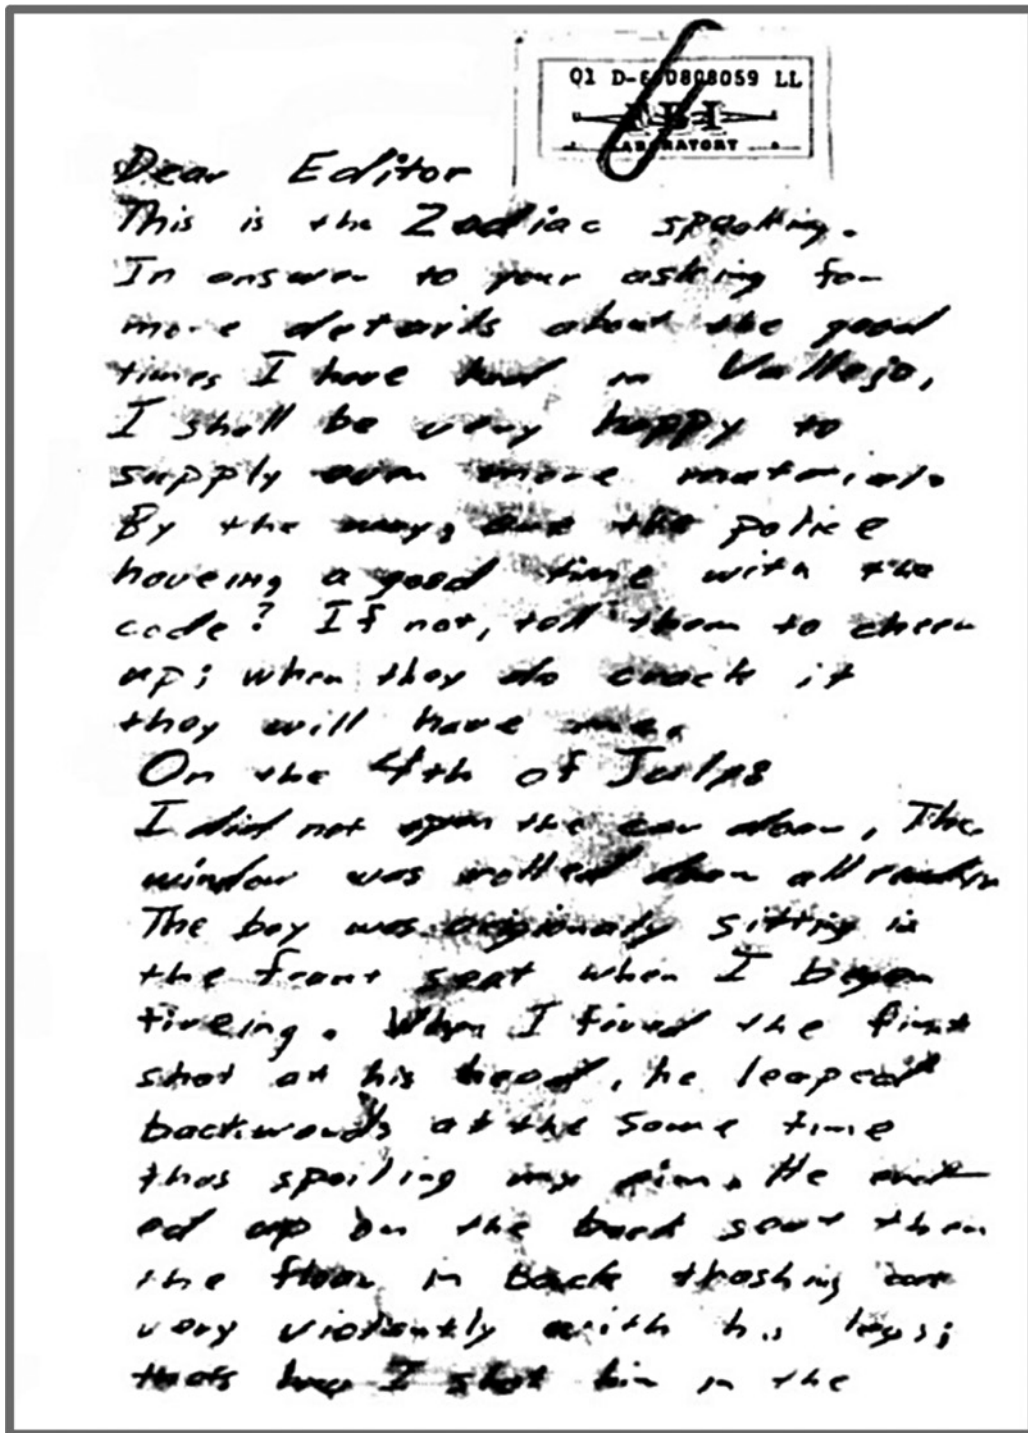 Q1 D-600808059 LL
FBI
LABORATORY
Dear Editor
This is the Zodiac speaking.
In answer to your asking for
more details about the good
times I have had in Vallejo,
I shall be very happy to
supply even more material.
By the way, are the police
haveing a good time with the
code? If not, tell them to cheer
up; when they do crack it
they will have me.
On the 4th of July:
I did not open the car door, The
window was rolled down all ready
The boy was origionaly sitting in
the front seat when I began
fireing. When I fired the first
shot at his head, he leaped
backwards at the same time
thus spoiling my aim. He end-
ed up on the back seat then
the floor in back thashing out
very violently with his legs;
thats how I shot him in the